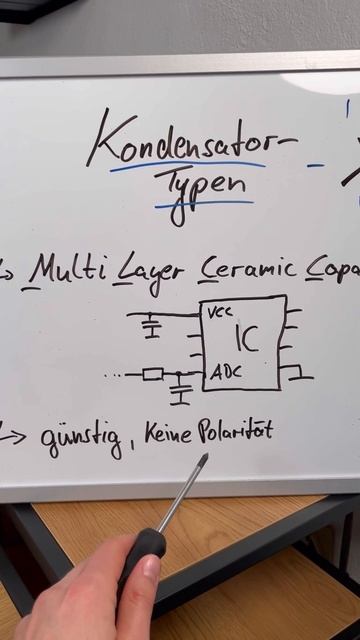 Kondensator-
Typen
Multi Layer Ceramic
VCC
IC
ADC
...
günstig, Keine Polarität